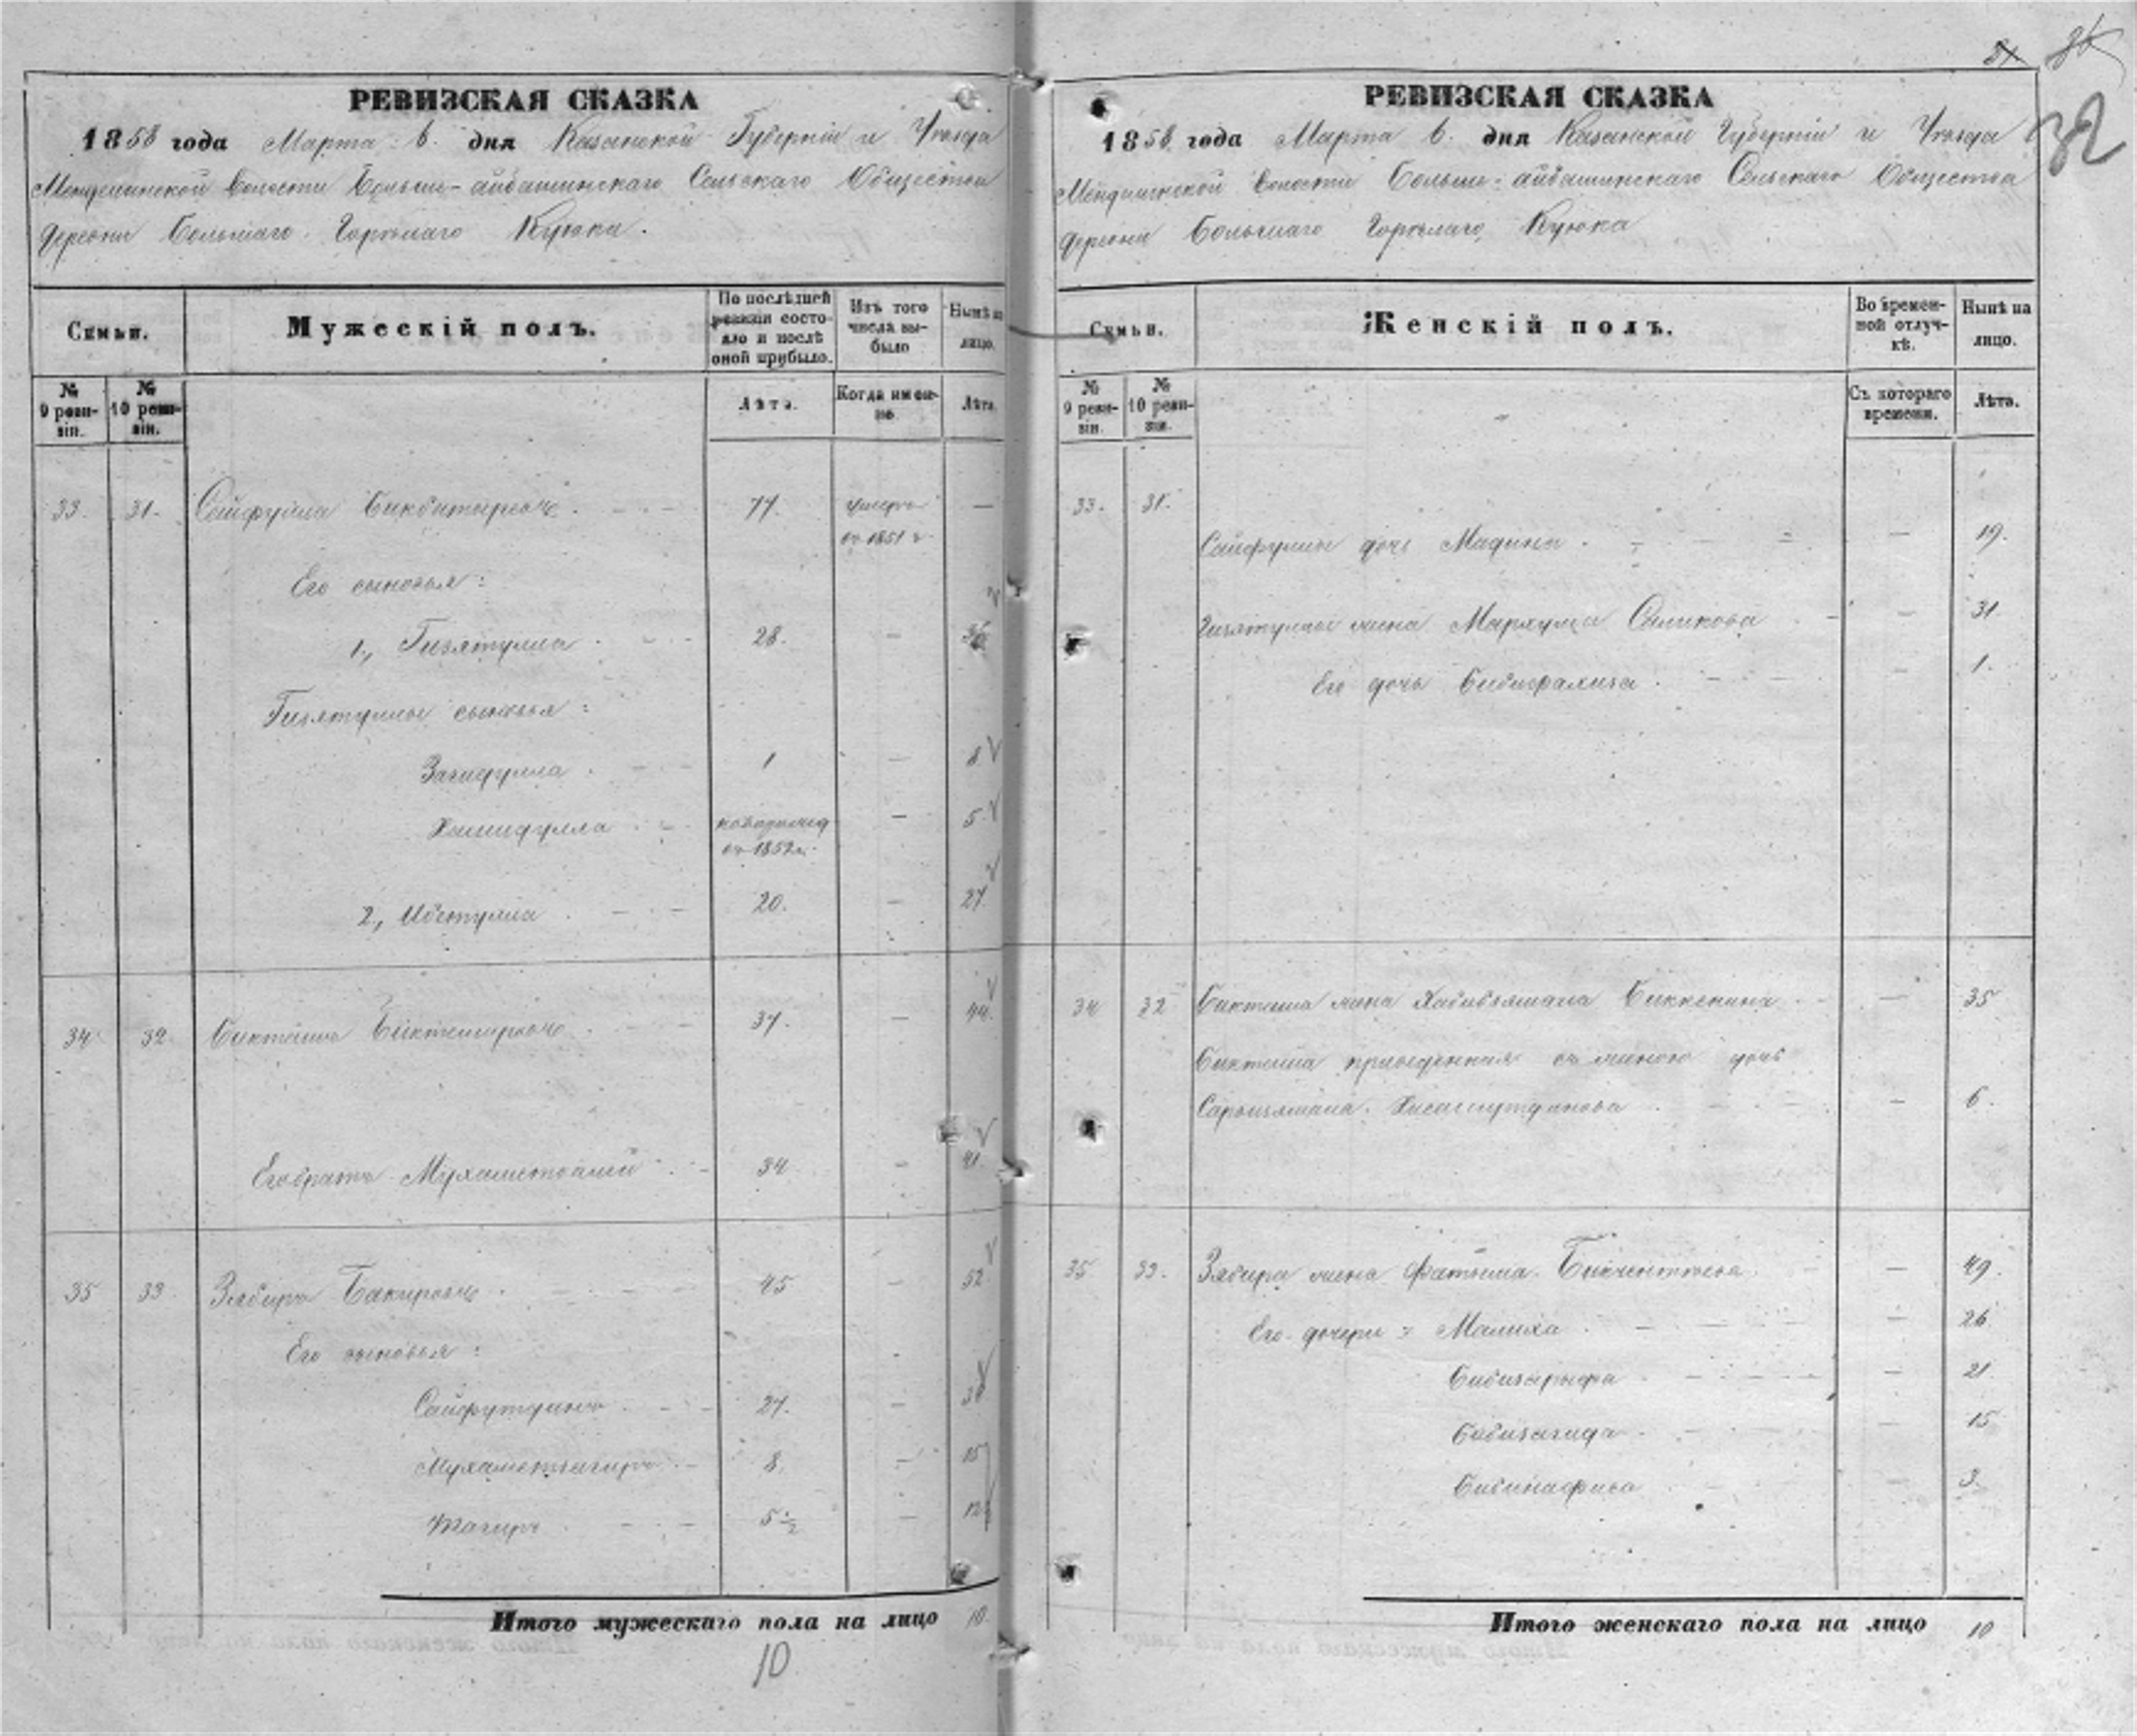 РЕВИЗСКАЯ СКАЗКА
1858 года Марта 6. дня Казанской Губерніи и Уѣзда
Менделинской Волости Больше-айбашинскаго Сельскаго Общества
деревни Большаго Горѣлаго Куюка.
Семьи.
Мужескій полъ.
По послѣдней ревизіи состояло и послѣ оной прибыло.
Изъ того числа выбыло
Нынѣ на лицо.
№ 9 ревизіи.
№ 10 ревизіи.
Лѣта.
Когда именно
Лѣта
33. 31. Сайфулла Бикбитыровъ. 77. умеръ —
въ 1851 г.
Его сыновья:
1., Гизятулла 28. —
Гизятуллы сыновья:
Загидулла 1 — 8
Хамидулла новорожд — 5
въ 1852 г.
2., Ибетулла 20. — 27.
34 32 Бикташъ Биктемировъ 37. — 44.
Его братъ Мухаметвалий 34 — 41.
35 33 Зябиръ Бакировъ 45 — 52
Его сыновья:
Сайфутдинъ 27. — 34
Мухаметзагиръ 8. — 15
Тагиръ 5 ½ — 12½
Итого мужескаго пола на лицо 10.
10
32
РЕВИЗСКАЯ СКАЗКА
1858 года Марта 6. дня Казанской Губерніи и Уѣзда
Менделинской Волости Больше-айбашинскаго Сельскаго Общества
деревни Большаго Горѣлаго Куюка
Семьи.
Женскій полъ.
Во временной отлучкѣ.
Нынѣ на лицо.
№ 9 ревизіи.
№ 10 ревизіи.
Съ котораго времени.
Лѣта.
33. 31.
Сайфуллы дочь Мадина — 19.
Гизятуллы жена Мархума Саликова — 31
Его дочь — 1.
34 32 Бикташа жена Хабибзямала Биккенина — 35
Бикташа приведенная съ женою дочь
Сарвизямала Хисамутдинова — 6.
35 33. Зябира жена Фатыма Бикчентеева — 49.
Его дочери: Малиха — 26.
Бибизарифа — 21.
Бибизагида — 15
Бибинафиса — 3.
Итого женскаго пола на лицо 10